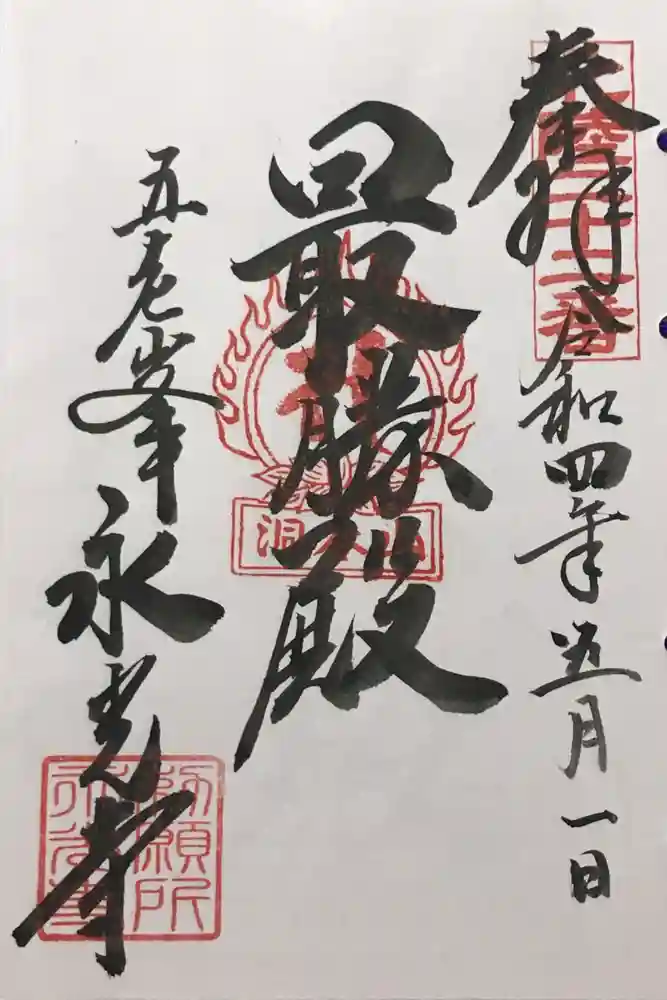 奉拝
令和四年五月一日
最勝殿
五老峯
永光寺
勅願所